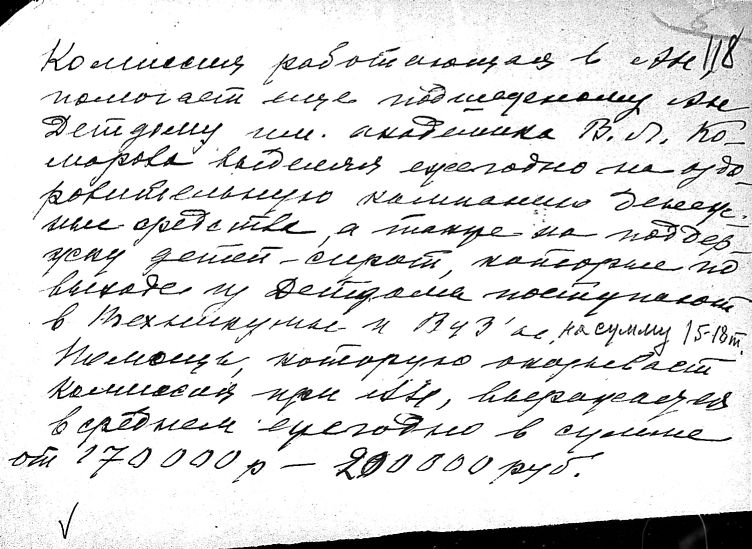 5
118
Комиссия работающая в Ан
помогает еще подшефному Ан
Детдому им. академика В. Л. Ко-
марова выделяя ежегодно на оздо-
ровительную кампанию денеж-
ные средства, а также на поддер-
жку детей-сирот, которые по
выходе из Детдома поступают
в Техникумы и ВУЗ'ы, на сумму 15-18 т.
Помощь, которую оказывает
комиссия при АН, выражается
в среднем ежегодно в сумме
от 170000 р – 200000 руб.